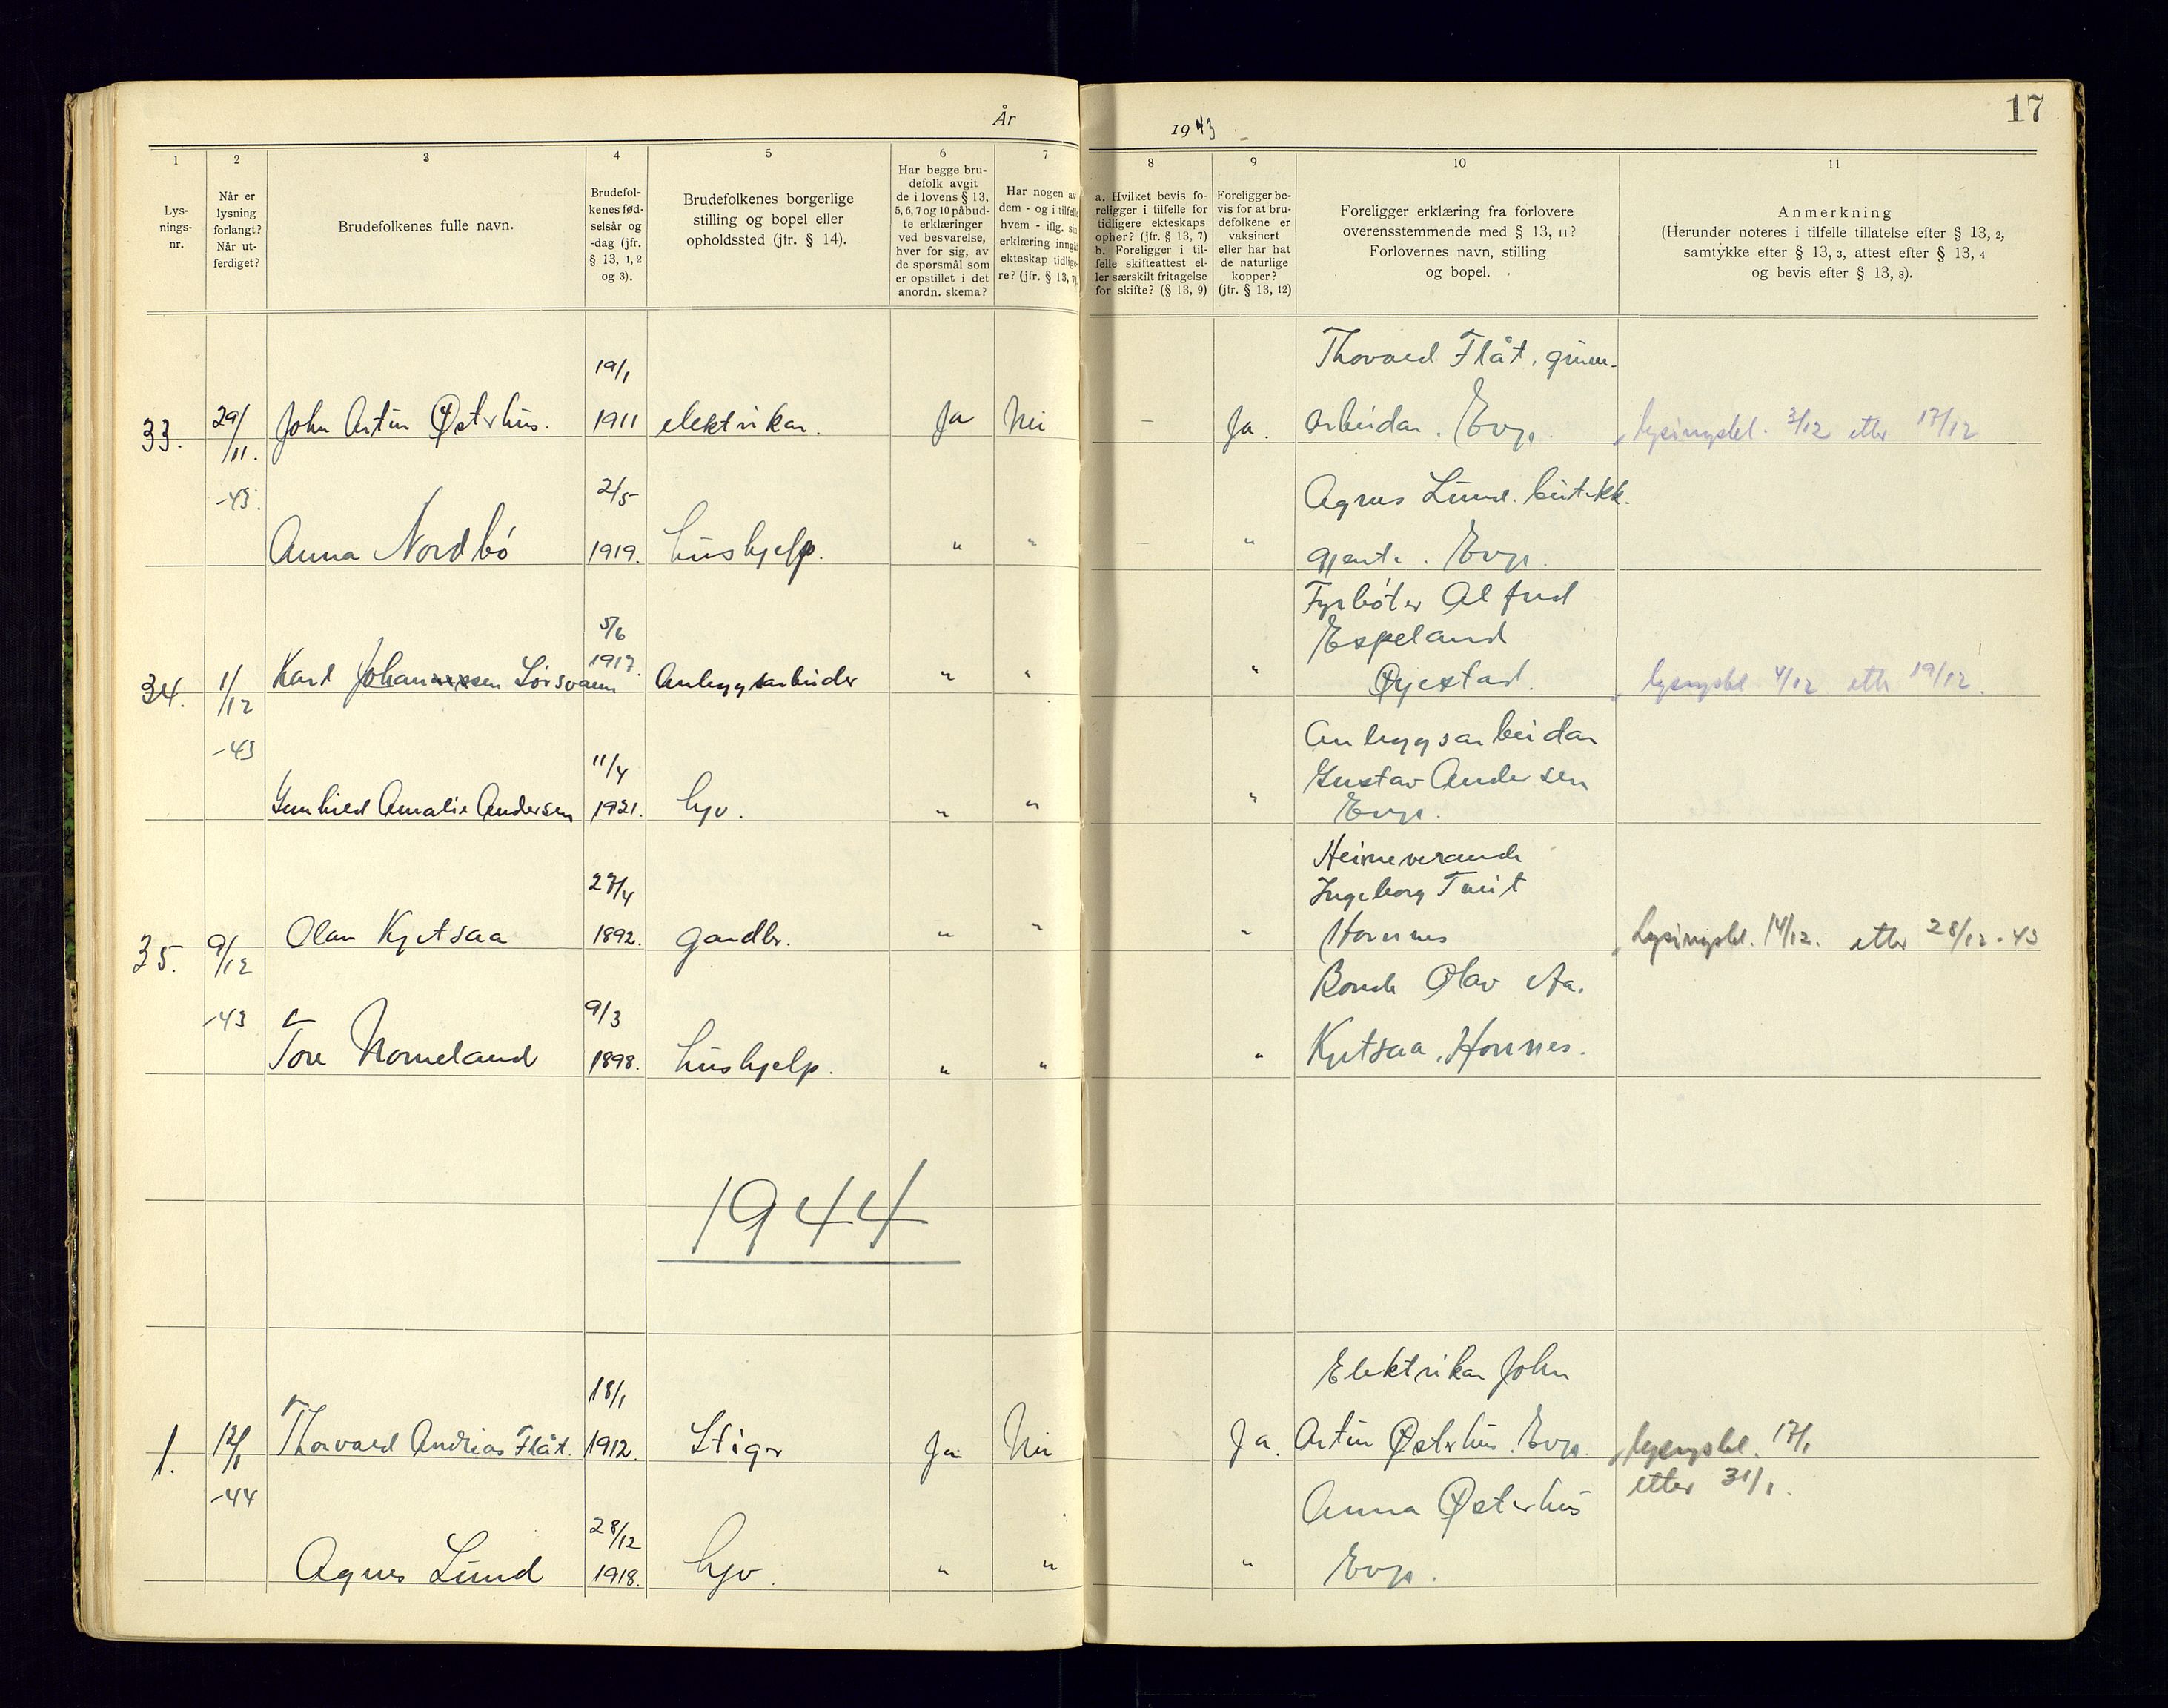 År 1943
17
1 2 3 4 5 6 7 8 9 10 11
Lys-
nings-
nr.
Når er
lysning
forlangt?
Når ut-
ferdiget?
Brudefolkenes fulle navn.
Brudefol-
kenes fød-
selsår og
-dag (jfr.
§ 13, 1, 2
og 3).
Brudefolkenes borgerlige
stilling og bopel eller
opholdssted (jfr. § 14).
Har begge bru-
defolk avgit
de i lovens § 13,
5, 6, 7 og 10 påbud-
te erklæringer
ved besvarelse,
hver for sig, av
de spørsmål som
er opstillet i det
anordn. skema?
Har nogen av
dem - og i tilfelle
hvem - iflg. sin
erklæring inngåt
ekteskap tidlige-
re? (jfr. § 13, 7)
a. Hvilket bevis fo-
religger i tilfelle for
tidligere ekteskaps
ophør? (jfr. § 13, 7)
b. Foreligger i til-
felle skifteattest el-
ler særskilt fritagelse
for skifte? (§ 13, 9)
Foreligger be-
vis for at bru-
defolkene er
vaksinert
eller har hat
de naturlige
kopper?
(jfr. § 13, 12)
Foreligger erklæring fra forlovere
overensstemmende med § 13, 11?
Forlovernes navn, stilling
og bopel.
Anmerkning
(Herunder noteres i tilfelle tillatelse efter § 13, 2,
samtykke efter § 13, 3, attest efter § 13, 4
og bevis efter § 13, 8).
33.
29/11.
-43.
John Artur Østerhus.
19/1
1911
elektrikar.
Ja
Nei
–
Ja.
Thorvald Flåt, gruve-
arbeidar. Evje.
lysingssel. 3/12 etter 17/12
Anna Nordbö
2/5
1919.
hushjelp.
"
"
–
"
Agnes Lund. butikk.
gjente. Evje.
34.
1/12
-43
Karl Johannessen Lörsvann
5/6
1917.
Anleggsarbeider
"
"
"
Fyrböter Alfred
Espeland
Øyestad.
lysingssel 4/12 etter 19/12.
Gunhild Amalie Andersen
11/4
1921.
hjv.
"
"
"
Anleggsarbeidar
Gustav Andersen
Evje.
35.
9/12
-43
Olav Kjetsaa
27/4
1892.
gardbr.
"
"
"
Heimeverande
Ingeborg Tveit
Hornnes
Lysingssel. 14/12. etter 28/12-43
Tore Homeland
9/3
1898.
hushjelp.
"
"
"
Bonde Olav Aa.
Kjetsaa, Hornnes.
1944
1.
12/1
-44
Thorvald Andreas Flåt.
18/1
1912.
Stigar
Ja
Nei
Ja.
Elektrikar John
Artur Østerhus. Evje.
lysingssel. 17/1
etter 31/1.
Agnes Lund
28/12
1918.
hjv.
"
"
"
Anna Østerhus
Evje.